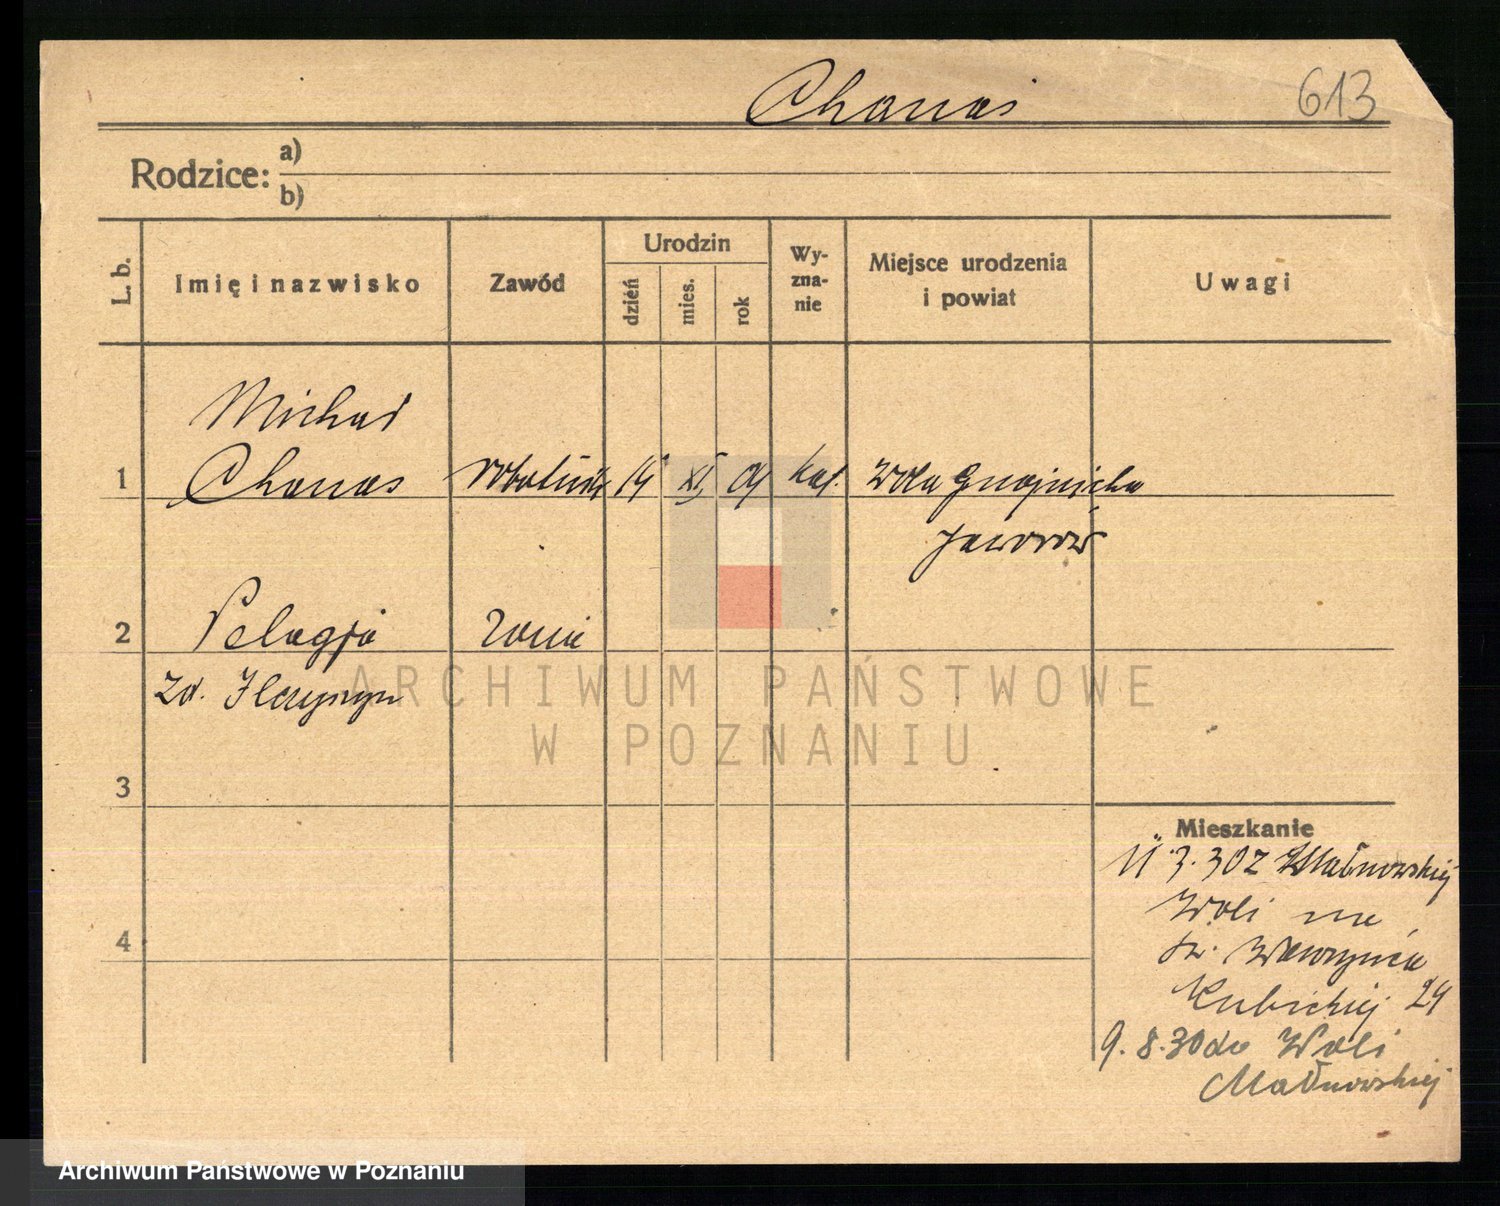 Chanas
613
Rodzice:
a)
b)
L. b.
Imię i nazwisko
Zawód
Urodzin
dzień
mies.
rok
Wy-
zna-
nie
Miejsce urodzenia
i powiat
Uwagi
Michał
1 Chanas robotnik XI 09 kat. Wola Gnojnicka
Jaworów
2 Pelagja żona
zd.
3
4
Mieszkanie
3.30 z Małnowskiej
Woli na
św. Wawrzyńca
Kubickiej 24
9.8.30 do Woli
Małnowskiej
ARCHIWUM PAŃSTWOWE
W POZNANIU
Archiwum Państwowe w Poznaniu